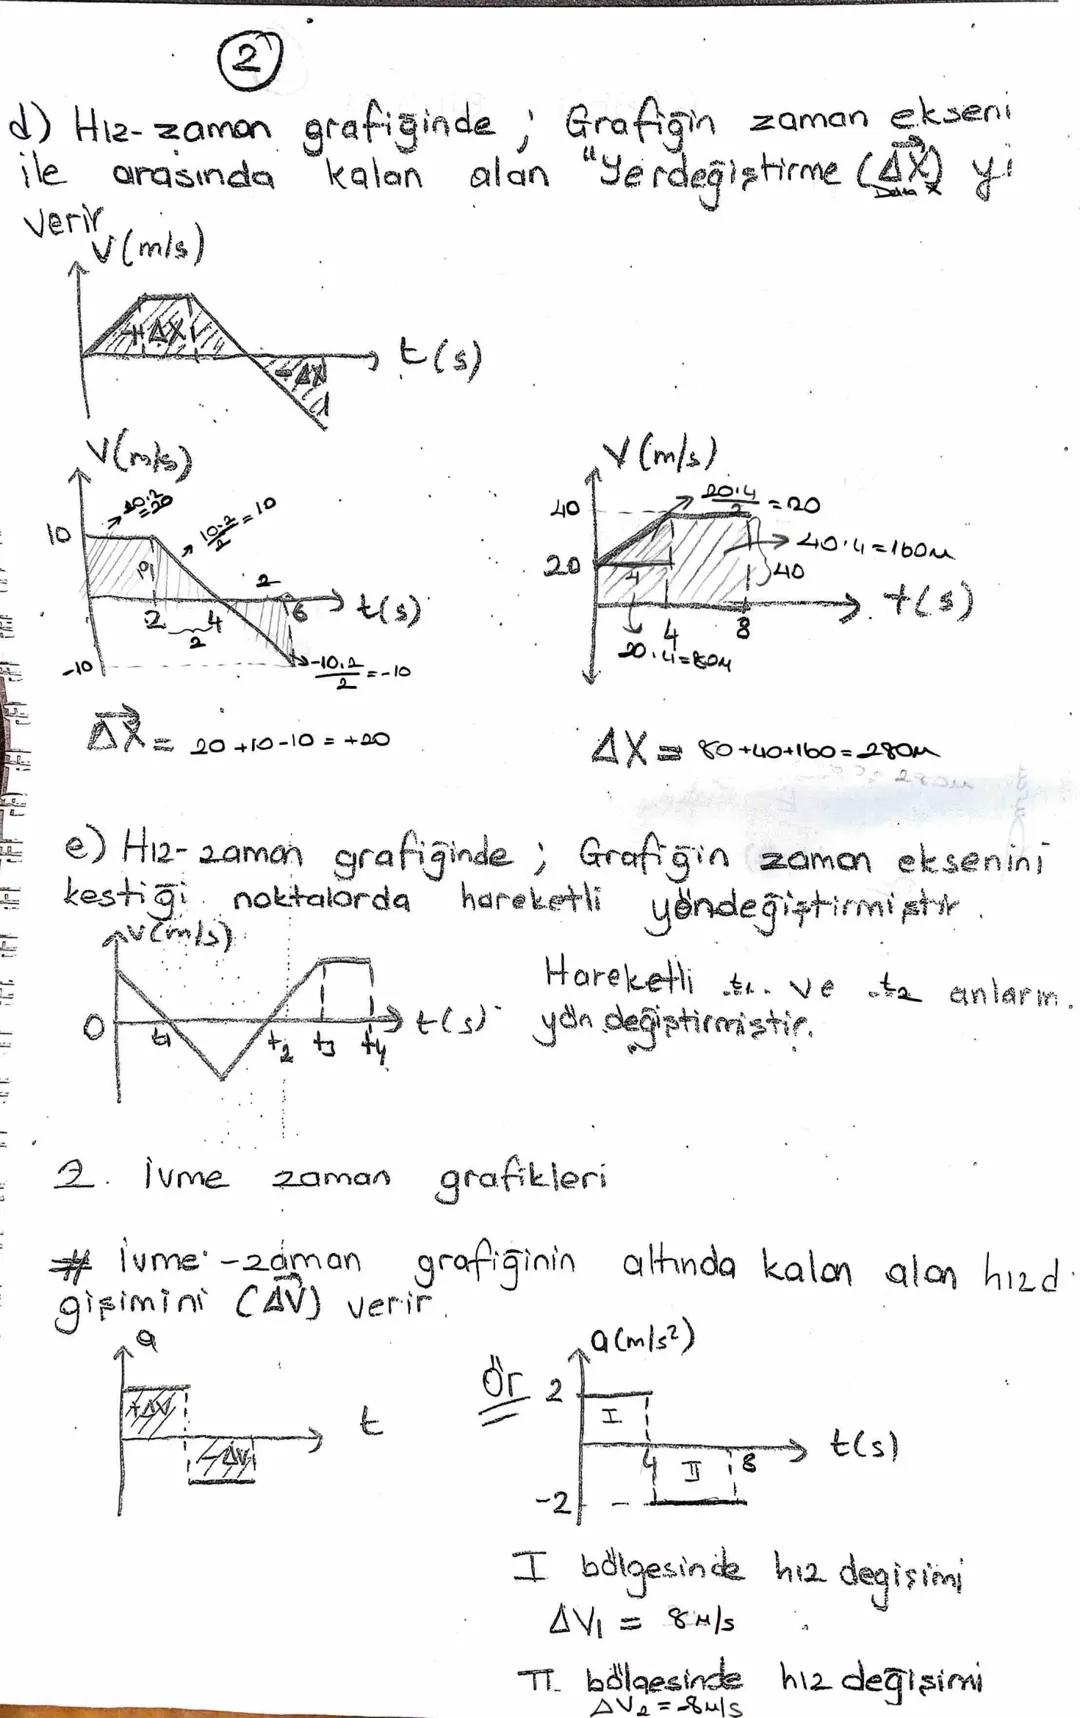 2
d) Hız-zaman grafiğinde ; Grafiğin zaman ekseni
ile arasında kalan alan "Yerdeğiştirme (ΔX) yi
Delta X
verir
V(m/s)
+ΔX
-ΔX
t(s)
V(m/s)
10.2=20
10.2/2=10
10
2
2
4
6
t(s)
2
-10
-10.2/2=-10
ΔX = 20+10-10=+20
V(m/s)
20.4/2=20
40
40.4=160m
20
4
40
t(s)
4
8
20.4=80m
ΔX = 80+40+160=280m
e) Hız-zaman grafiğinde ; Grafiğin zaman eksenini
kestiği noktalarda hareketli yöndeğiştirmiştir.
V(m/s)
0
t1
t2
t3
t4
t(s)
Hareketli t1. ve t2 anların.
yön değiştirmiştir.
2. İvme zaman grafikleri
# İvme-zaman grafiğinin altında kalan alan hızd
ğişimini (ΔV) verir.
a
+ΔV
-ΔV
t
Ör
a(m/s²)
2
I
4
II
8
t(s)
-2
I bölgesinde hız degişimi
ΔV1 = 8m/s
II. bölgesinde hız değişimi
ΔV2=-8m/s